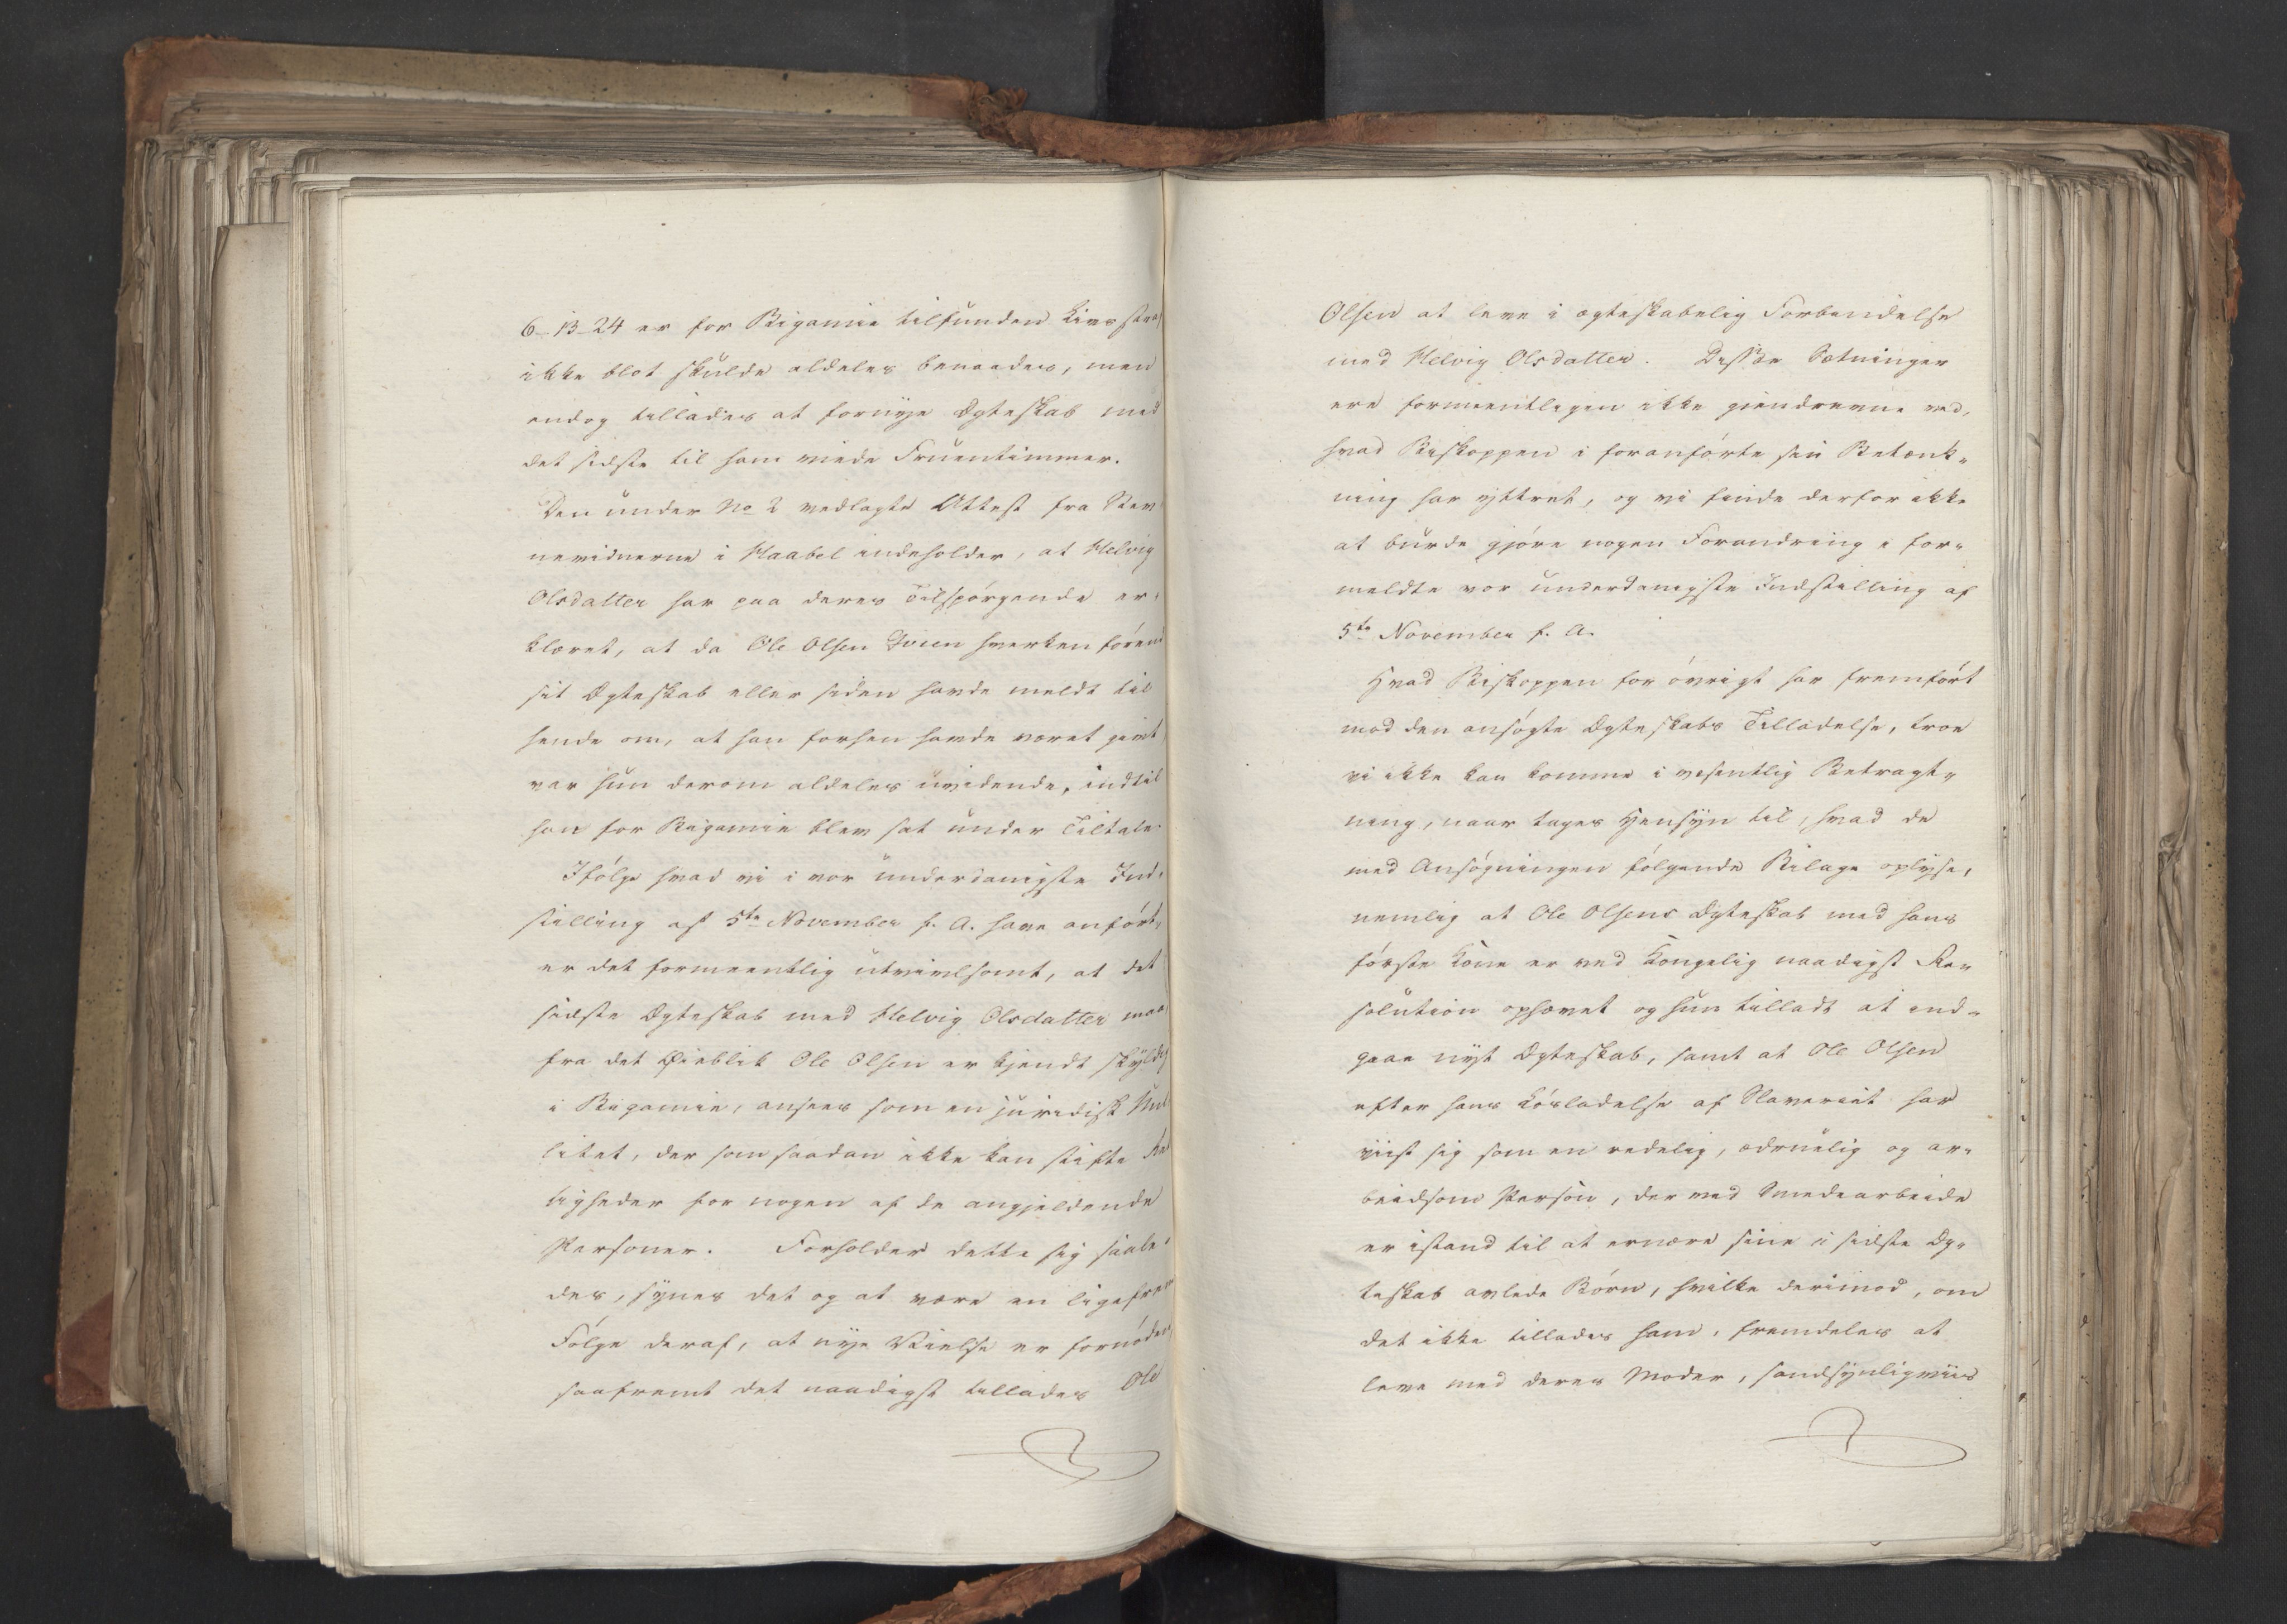 6-13-24 er for Bigamie tilfunden Livsstraf
ikke blot skulde aldeles benaades, men
endog tillades at fornye Ægteskab med
det sidste til ham viede Fruentimmer.
Den under No 2 vedlagte Attest fra Stev-
nevidnerne i Haabel indeholder, at Helvig
Olsdatter har paa deres Tilspørgende er-
klæret, at da Ole Olsen hverken førend
sit Ægteskab eller siden havde meldt til
hende om, at han forhen havde været givt
var hun derom aldeles uvidende, indtil
han for Bigamie blev sat under Tiltale.
Ifølge hvad vi i vor underdanigste Ind-
stilling af 5te November f. A. have anført,
er det formeentlig utvivlsomt, at det
sidste Ægteskab med Helvig Olsdatter maa
fra det Øieblik Ole Olsen er kjendt skyldig
i Bigamie, ansees som en juridisk Nul
litet, der som saadan ikke kan stifte Ret
tigheder for nogen af de angjeldende
Personer. Forholder dette sig saale-
des, synes det og at være en ligefrem
Følge deraf, at nye Vielse er fornøden
saafremt det naadigst tillades Ole
Olsen at leve i ægteskabelig Forbindelse
med Helvig Olsdatter. Disse Sætninger
ere formeentligen ikke gjendrevne ved,
hvad Biskoppen i foranførte sin Betænk-
ning har yttret, og vi finde derfor ikke
at burde gjøre nogen Forandring i for-
meldte vor underdanigste Indstilling af
5te November f. A.
Hvad Biskoppen for øvrigt har fremført
mod den ansøgte Ægteskabs Tilladelse, troe
vi ikke kan komme i vesentlig Betragt-
ning, naar tages Hensyn til, hvad de
med Ansøgningen følgende Bilage oplyse,
nemlig at Ole Olsens Ægteskab med hans
første Kone er ved Kongelig naadigst Re-
solution ophævet og hun tilladt at ind-
gaae nyt Ægteskab, samt at Ole Olsen
efter hans Løsladelse af Slaveriet har
viist sig som en redelig, ædruelig og ar-
beidsom Person, der ved Smedearbeide
er istand til at ernære sine i sidste Æg-
teskab avlede Børn, hvilke derimod, om
det ikke tillades ham, fremdeles at
leve med deres Moder, sandsynligviis